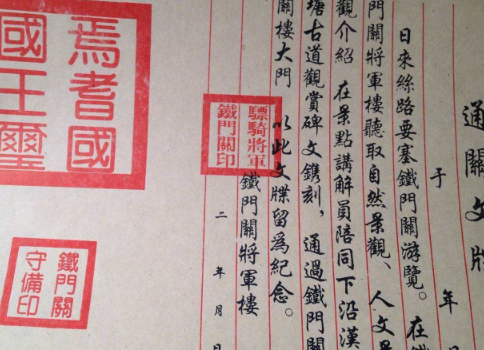 通關文牒
于 年
日來絲路要塞鐵門關游覽。在
門關將軍樓聽取自然景觀、人文景
觀介紹 在景點講解員陪同下沿漢
塘古道觀賞碑文鐫刻，通過鐵門關
關樓大門 以此文牒留為紀念。
鐵門關將軍樓
二 年 月 日
驃騎將軍
鐵門關印
焉耆國
國王璽
鐵門關
守備印